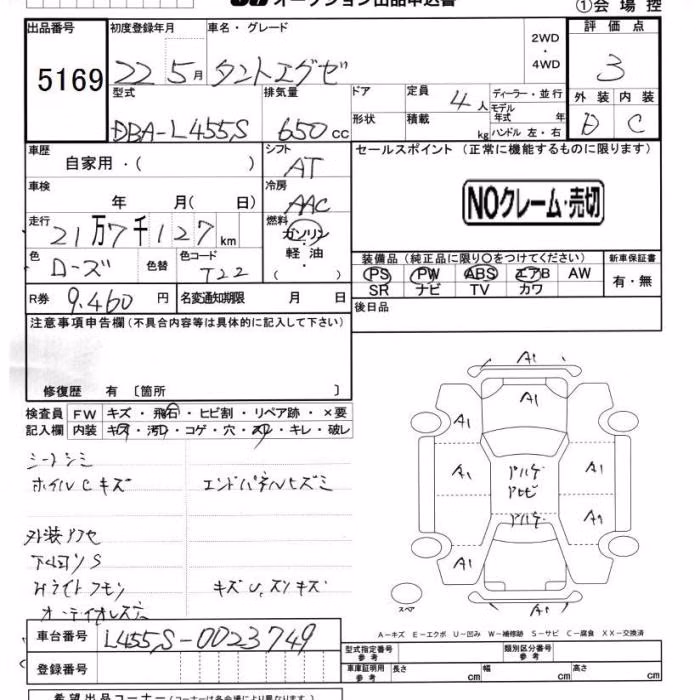 オークション出品申込書
①会場控
出品番号 初度登録年月 車名・グレード 2WD・4WD 評価点
5169 22 5月 タントエグゼ 3
型式 排気量 ドア 定員 4人 ディーラー・並行 外装 内装
DBA-L455S 650cc 形状 積載 kg モデル年式 年 ハンドル 左・右 D C
車歴 シフト セールスポイント (正常に機能するものに限ります)
自家用・( ) AT
車検 冷房
年 月( 日) AAC NOクレーム・売切
走行 燃料
21万7千127km ガソリン
軽油
( )
色 色替 色コード 装備品 (純正品に限り○をつけてください) 新車保証書
ローズ T22 PS PW ABS エアB AW 有・無
SR ナビ TV カワ
R券 9,460円 名変通知期限 月 日 後日品
注意事項申告欄(不具合内容等は具体的に記入して下さい)
修復歴 有 〔箇所 〕
検査員 FW キズ・飛石・ヒビ割・リペア跡・×要
記入欄 内装 キズ・汚れ・コゲ・穴・スレ・キレ・破レ
シートシミ
ホイルCキズ エンドパネルヒズミ
外装
キズU,スリキズ
A1
A1
A1
A1 A1
A1
A1
スペア
A-キズ E-エクボ U-凹み W-補修跡 S-サビ C-腐食 XX-交換済
車台番号 L455S-0023749
登録番号
型式指定番号 類別区分番号
車庫証明用参考 長さ cm 幅 cm 高さ cm
希望出品コーナー(コーナーは各会場により異なります。)